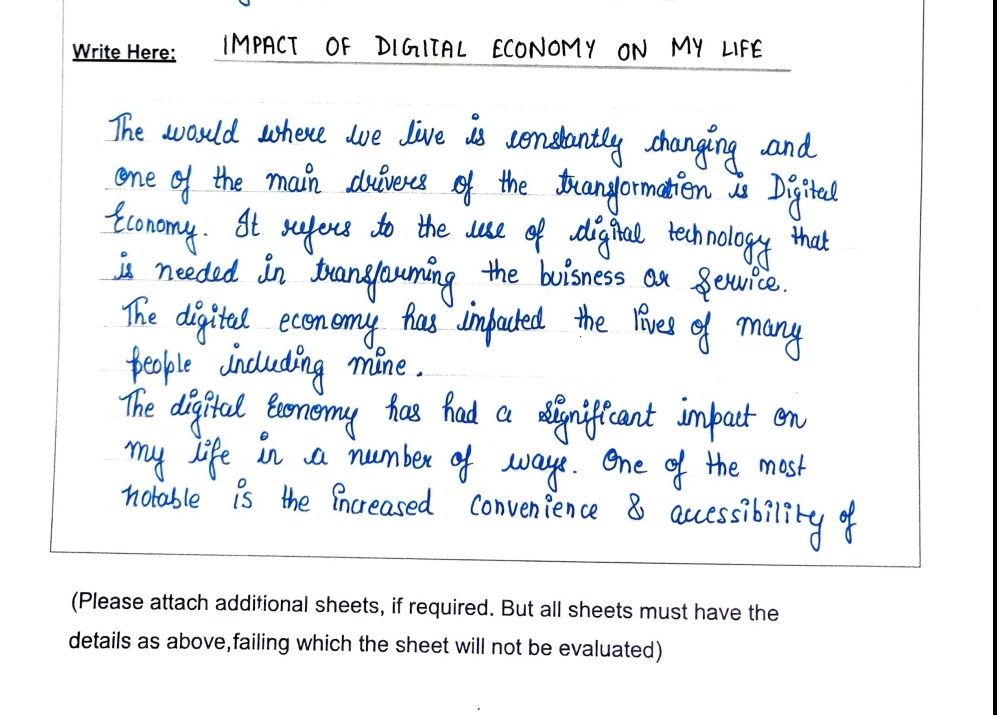 Write Here: IMPACT OF DIGITAL ECONOMY ON MY LIFE
The world where we live is constantly changing and
one of the main drivers of the transformation is Digital
Economy. It refers to the use of digital technology that
is needed in transforming the buisness or Service.
The digital economy has impacted the lives of many
people including mine.
The digital Economy has had a significant impact on
my life in a number of ways. One of the most
notable is the increased convenience & accessibility of
(Please attach additional sheets, if required. But all sheets must have the
details as above,failing which the sheet will not be evaluated)